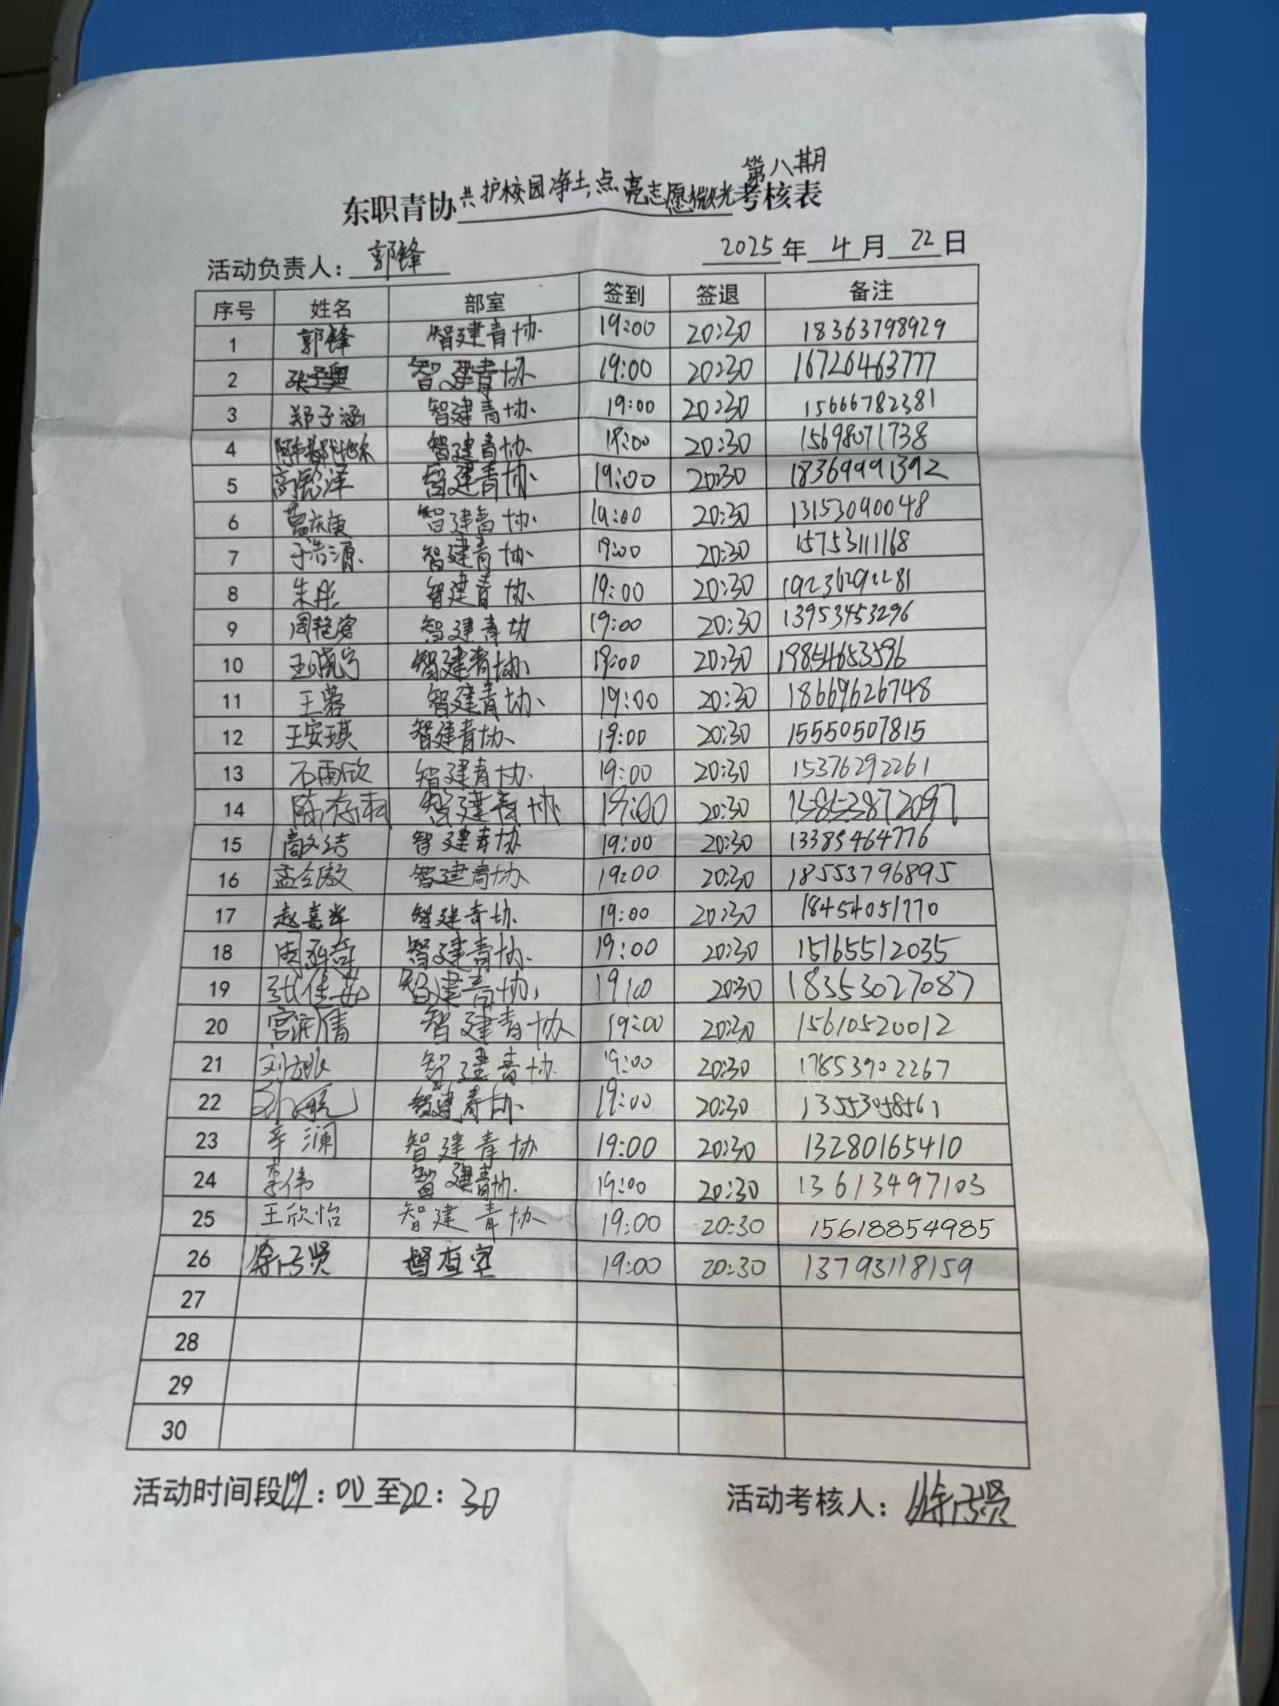 第八期
东职青协共护校园净土,点亮志愿微光考核表
活动负责人：郭锋 2025年4月22日
序号 姓名 部室 签到 签退 备注
1 郭锋 智建青协 19:00 20:30 18363798929
2 智建青协 19:00 20:30 16726463777
3 郑子涵 智建青协 19:00 20:30 15666782381
4 智建青协 19:00 20:30 15698071738
5 智建青协 19:00 20:30 18369991392
6 智建青协 19:00 20:30 13153090048
7 于浩源 智建青协 19:00 20:30 15753111168
8 朱彤 智建青协 19:00 20:30 19236292281
9 智建青协 19:00 20:30 13953453296
10 王晓宁 智建青协 19:00 20:30 19854653596
11 王蓉 智建青协 19:00 20:30 18669626748
12 王安琪 智建青协 19:00 20:30 15550507815
13 石雨欣 智建青协 19:00 20:30 15376292261
14 智建青协 19:00 20:30 15853872097
15 智建青协 19:00 20:30 13385464776
16 智建青协 19:00 20:30 18553796895
17 赵嘉华 智建青协 19:00 20:30 18454051770
18 智建青协 19:00 20:30 15165512035
19 张佳茹 智建青协 19:00 20:30 18353027087
20 智建青协 19:00 20:30 15610520012
21 智建青协 19:00 20:30 17853902267
22 智建青协 19:00 20:30 13553058561
23 辛澜 智建青协 19:00 20:30 13280165410
24 李伟 智建青协 19:00 20:30 13613497103
25 王欣怡 智建青协 19:00 20:30 15618854985
26 督查室 19:00 20:30 13793118159
27
28
29
30
活动时间段19：00至20：30 活动考核人：